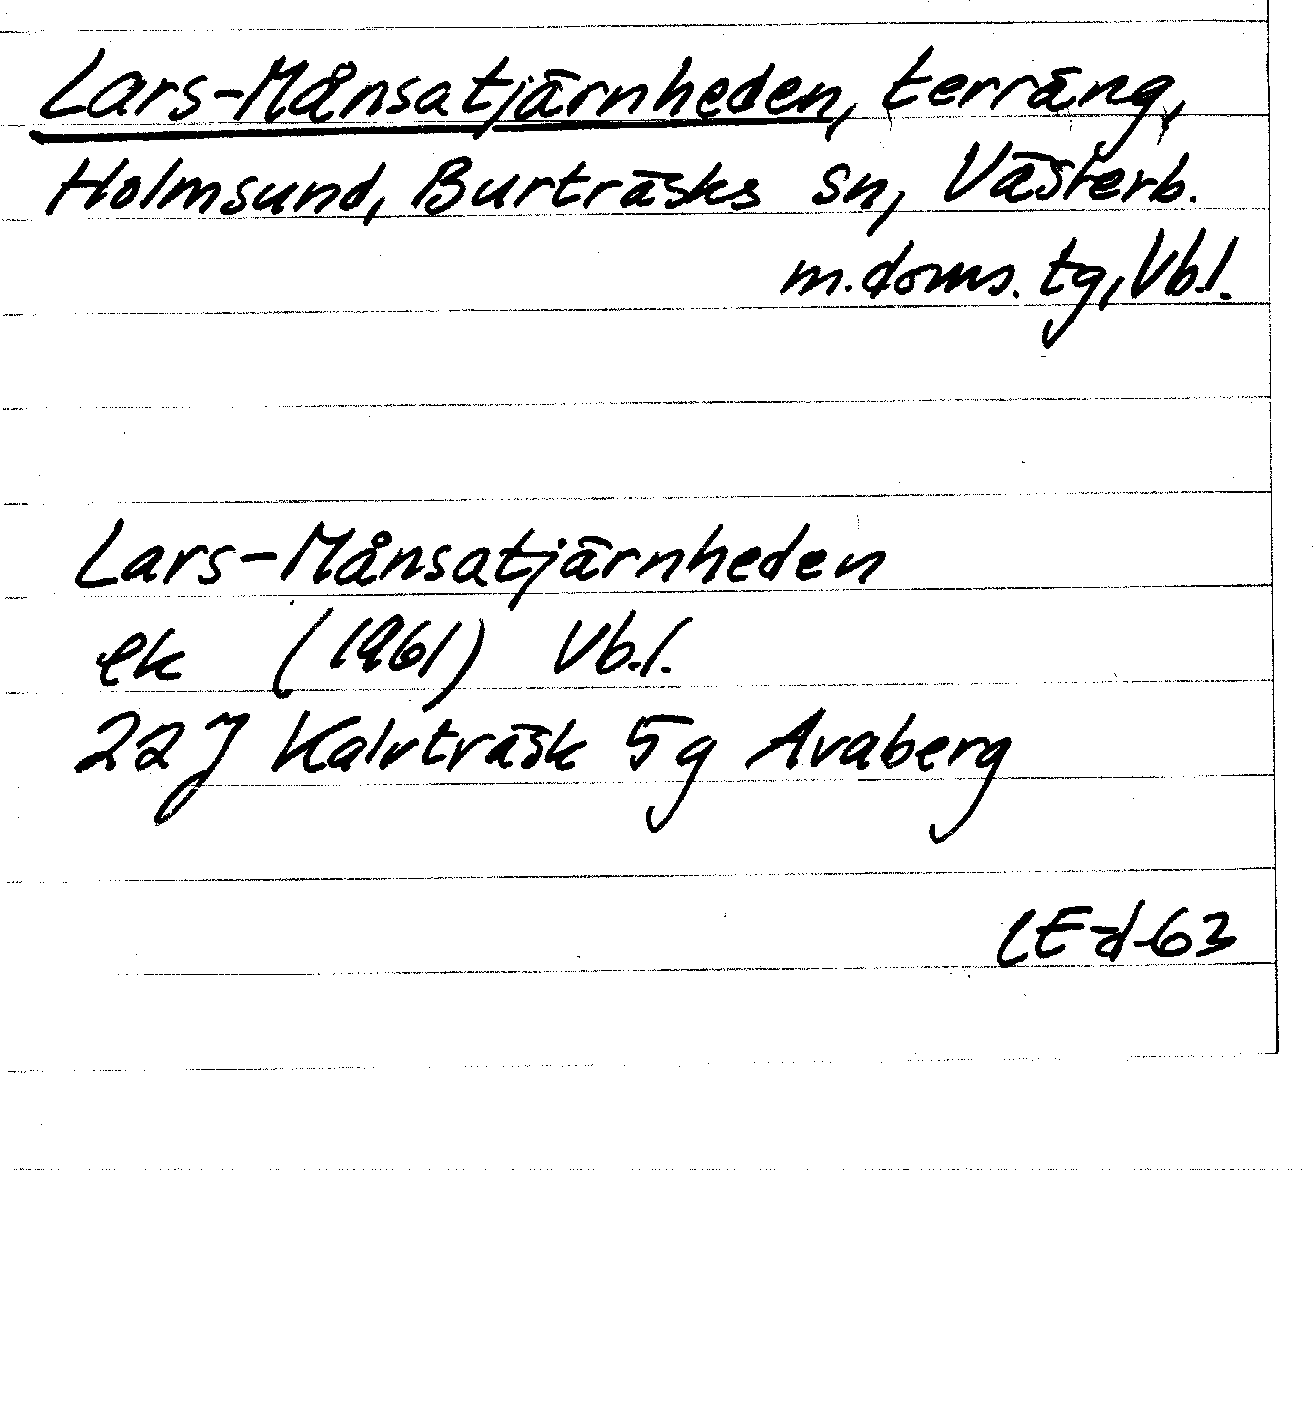 Lars-Månsatjärnheden, terräng,
Holmsund, Burträsks sn, Västerb.
m. doms. tg, Vb.l.
Lars-Månsatjärnheden
ek (1961) Vb.l.
22J Kalvträsk 5g Avaberg
LE-d-63